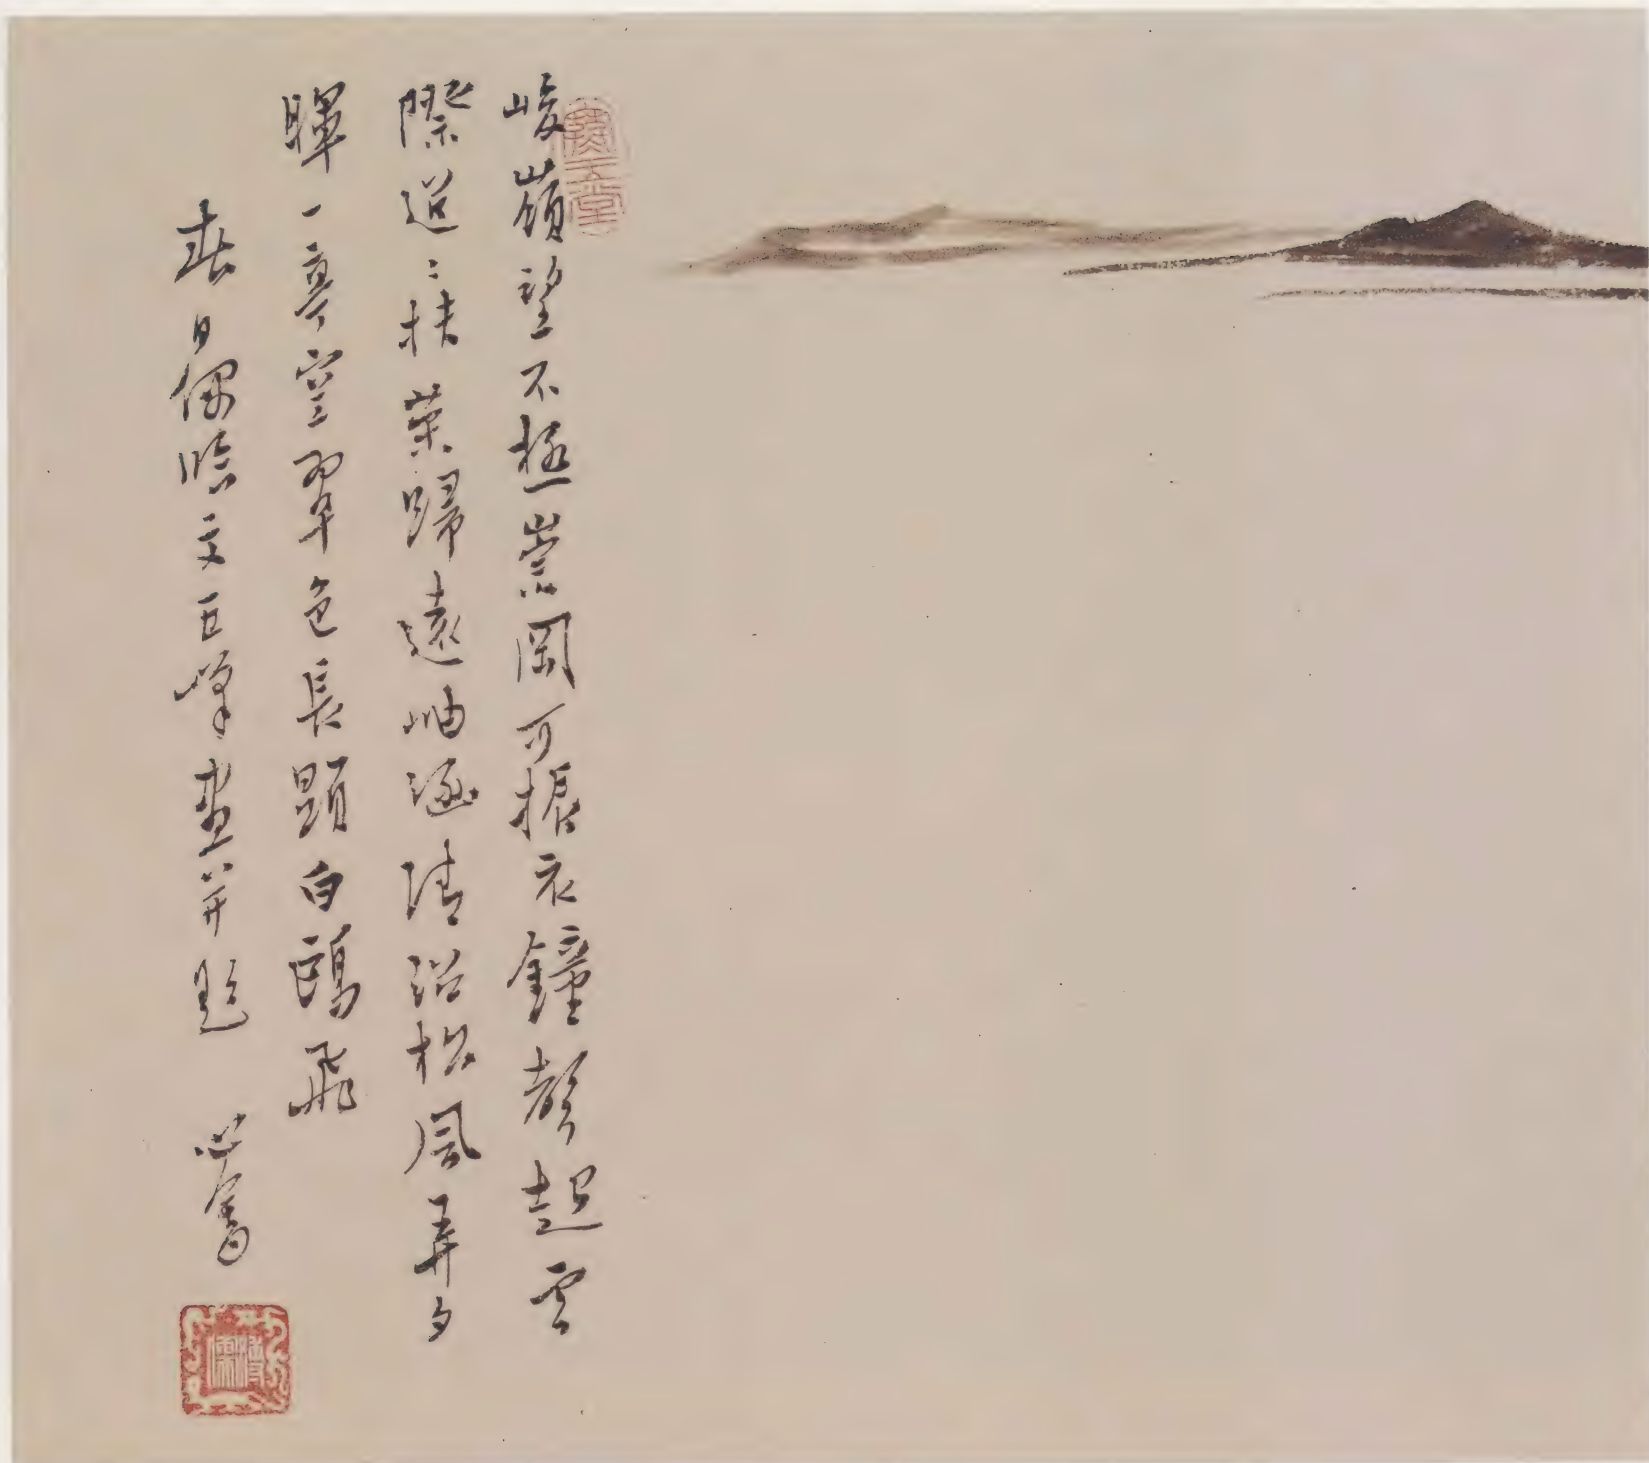 峻嶺望不極崇岡可振衣鐘聲起雲
際迢〻扶策歸遠岫涵清沼松風弄夕
暉一亭空翠色長顯白鷗飛
春日偶臨文五峯畫并題 心畬
溥儒